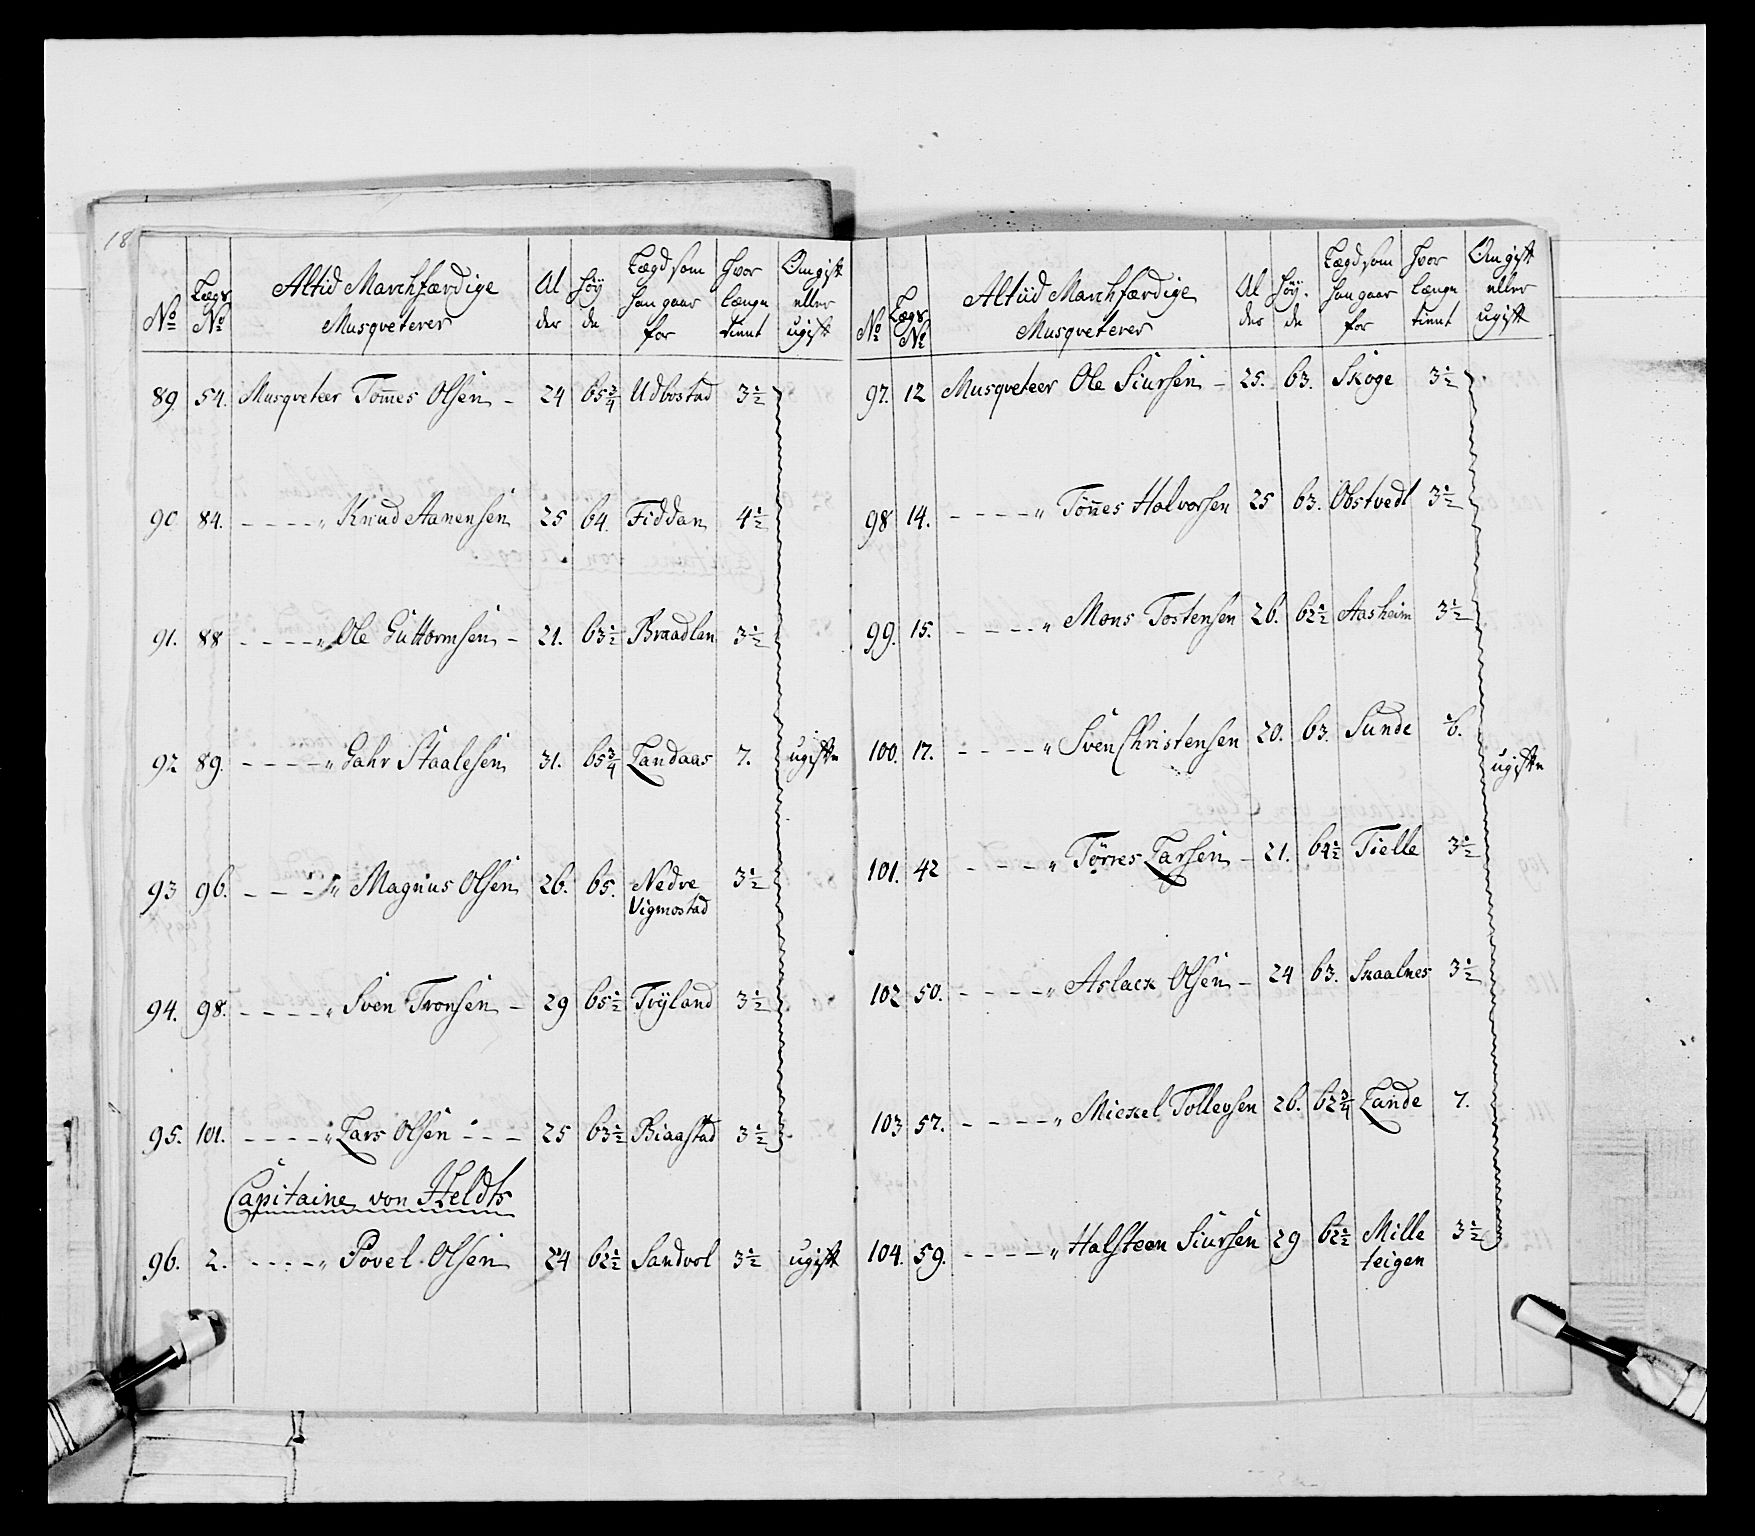 18
No Lægs No Altid Marchfærdige Musqveterer Al der Höy de Lægd som han gaar for Hvor længe tient Om gift eller ugift
89 54. Musqveteer Tom̄es Olsen - 24 65¾ Udbostad 3½
90 84. - - - - „ Knud Aanensen 25 64. Fiddan 4½
91. 88 - - - - „ Ole Guttormsen - 21. 63½ Braadlan 3½
92 89. - - - - „ Gahr Staalesen 31. 65¾ Landaas 7. ugifte
93 96. - - - - „ Magnus Olsen 26. 65. Nedre Vigmostad 3½
94. 98. - - - - „ Sven Tronsen - 29 65½ Trÿland 3½
95. 101. - - - - „ Lars Olsen - - - 25 63½ Biaastad 3½
Capitaine von Heldts
96. 2. - - - - „ Povel Olsen 24 62½ Sandvol 3½ ugift
No Lægs No Altiid Marchfærdige Musqveterer Al der Höÿ. de Lægd som han gaar for Hvor længe tient Om gift eller ugift
97. 12 Musqveteer Ole Siursen - 25. 63. Skoge 3½
98 14. - - - - „ Tön̄es Halvorsen 25 63. Obstvedt 3½
99. 15. - - - - „ Mons Tostensen 26. 62½ Aasheim 3½
100. 17. - - - - „ Sven Christensen 20. 63. Sunde ugifte
101. 42 - - - - „ Törres Larsen - 21. 64½ Tielle 3½
102 50. - - - - „ Aslack Olsen - 24 63. Skaalnes 3½
103 57. - - - - „ Mickel Tollevsen 26. 62¾ Lande 7.
104. 59. - - - - „ Halsteen Siursen 29 62½ Mille teigen 3½